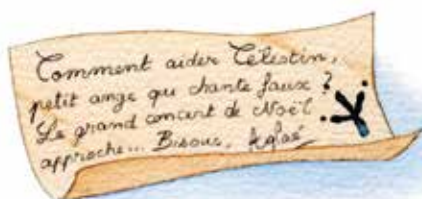 Comment aider Célestin,
petit ange qui chante faux ?
Le grand concert de Noël
approche... Bisous, Aglaé